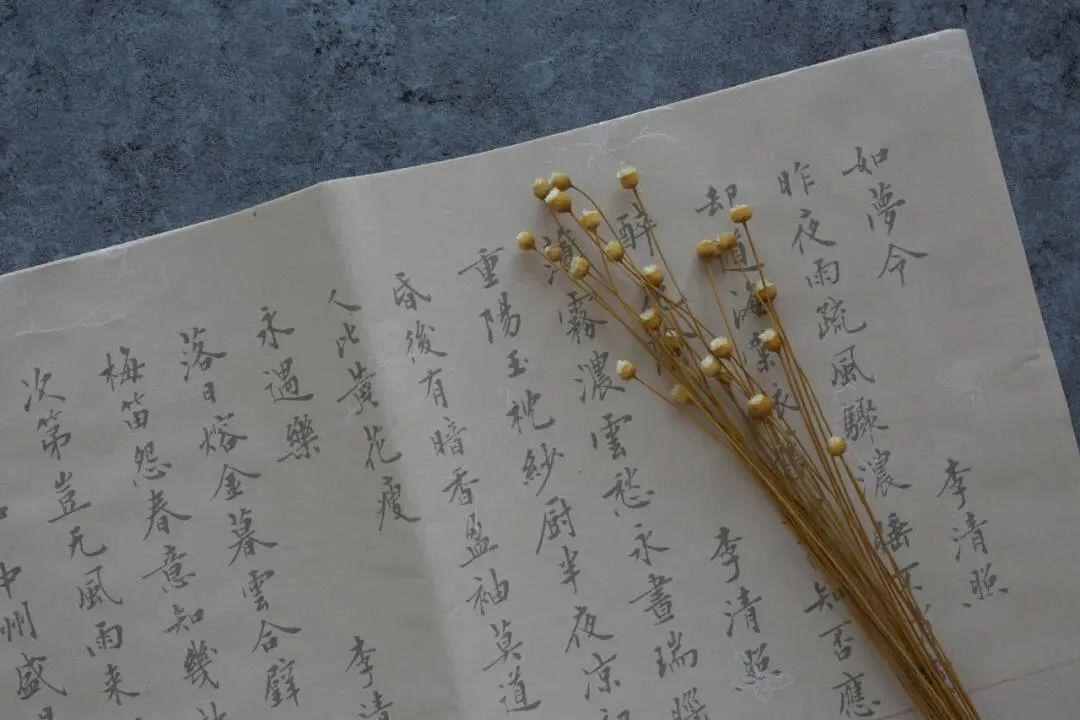 如夢令 李清照
昨夜雨疏風驟濃睡
却道海棠依 知否應
醉花 李清照
薄霧濃雲愁永晝瑞腦
重陽玉枕紗厨半夜凉初
昏後有暗香盈袖莫道
人比黃花瘦
永遇樂 李清
落日熔金暮雲合璧
梅笛怨春意知幾
次第豈无風雨来
中州盛